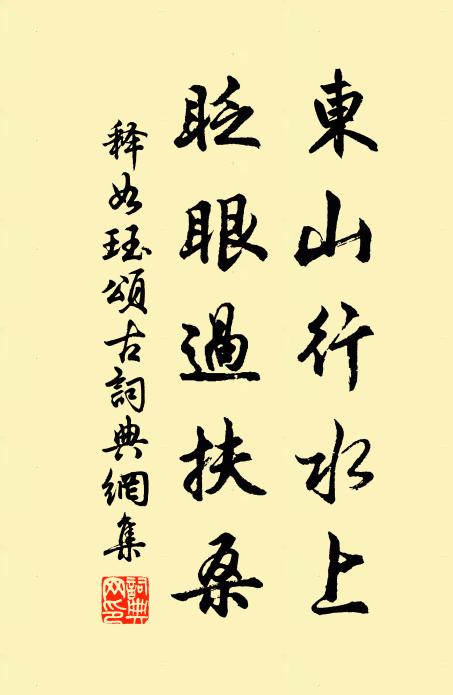 東山行水上
眨眼過扶桑
释如珏頌古詞典網集
詞典网印